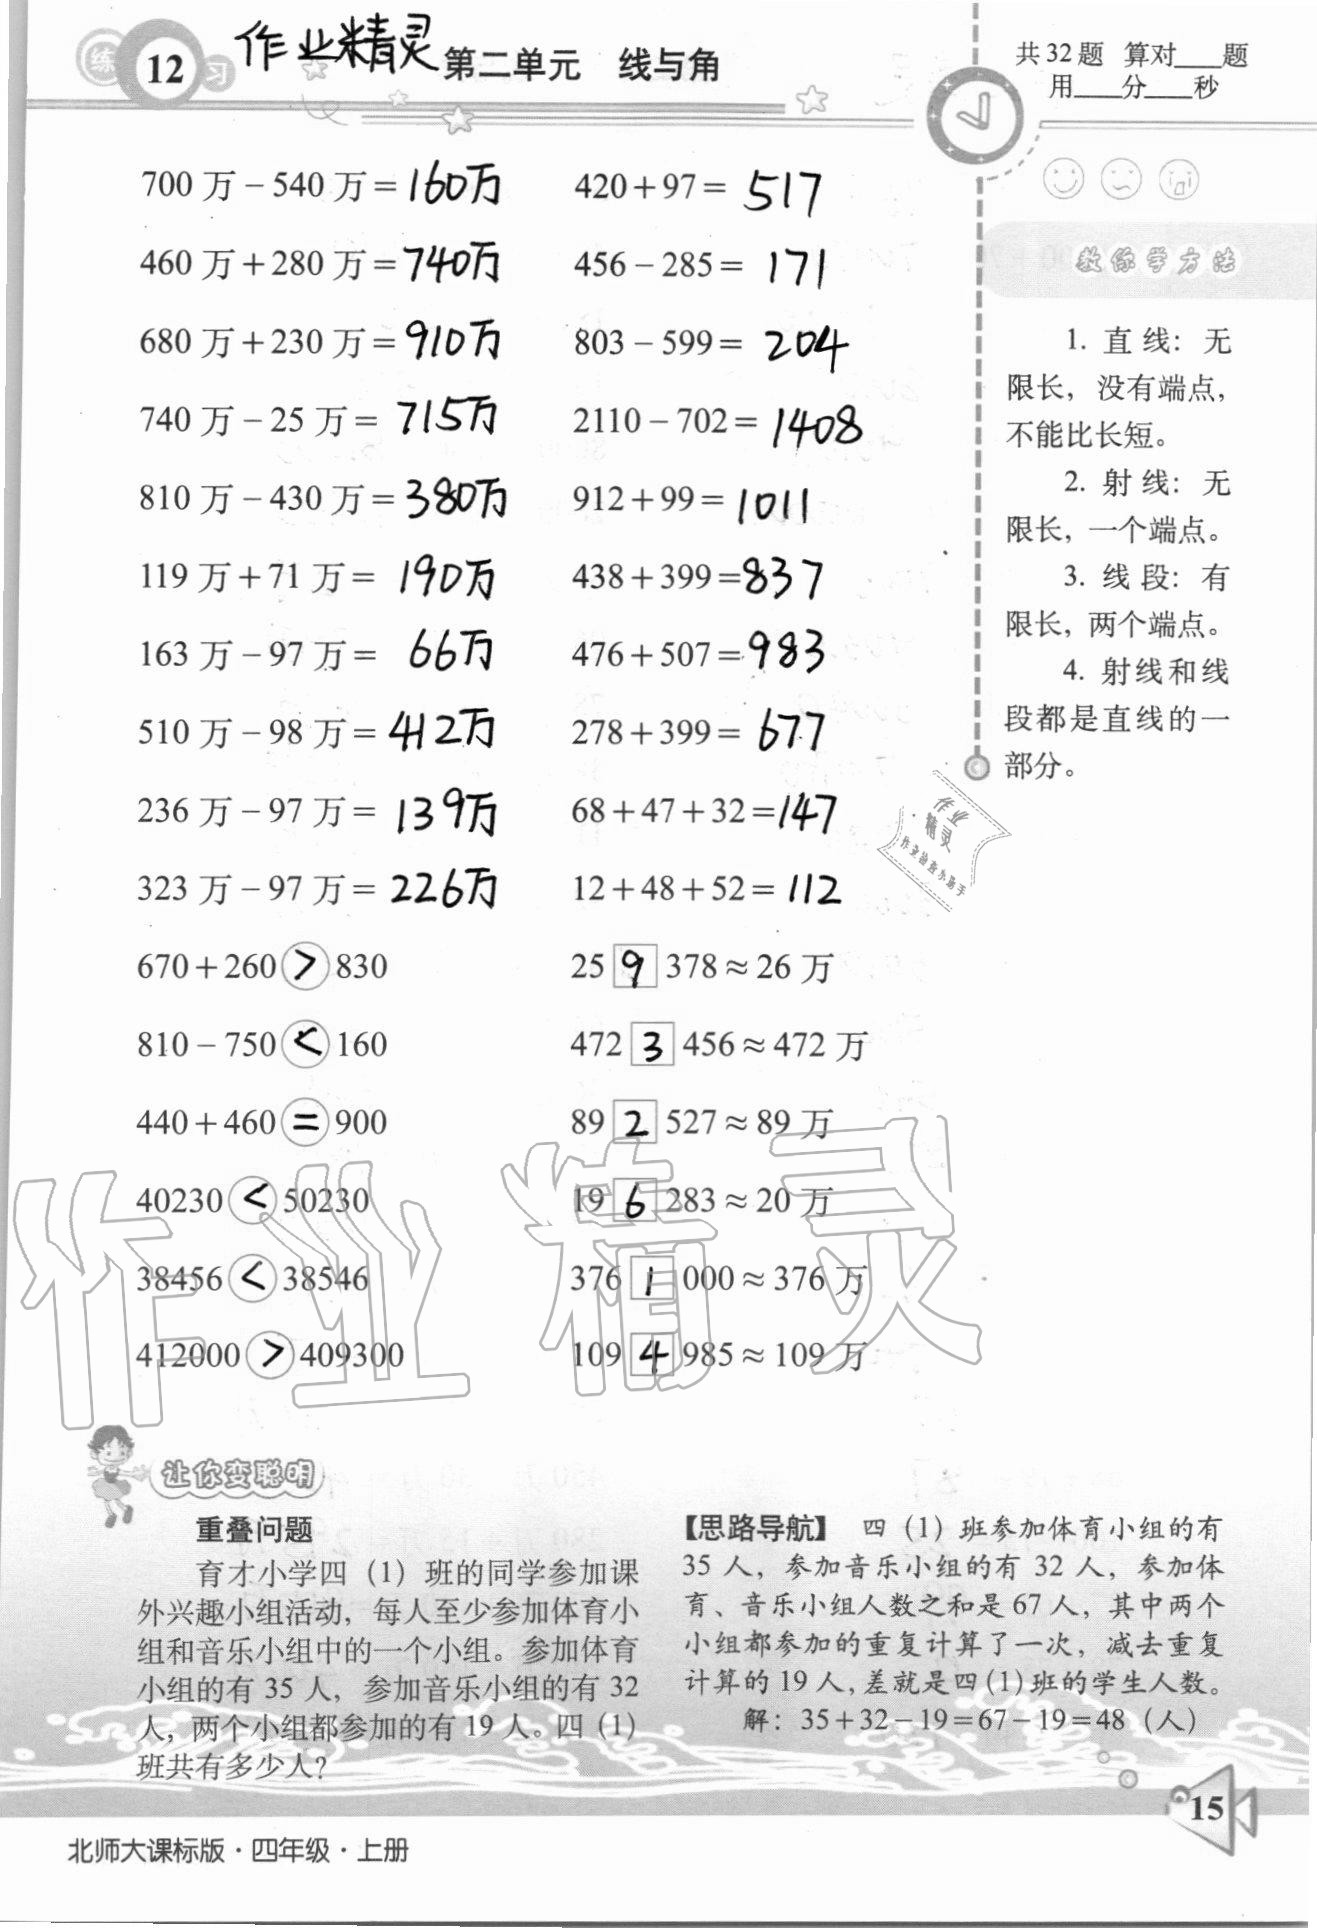 练 12 习 作业精灵 第二单元 线与角
共32题 算对____题
用____分____秒
700万－540万＝160万 420＋97＝517
460万＋280万＝740万 456－285＝171
680万＋230万＝910万 803－599＝204
740万－25万＝715万 2110－702＝1408
810万－430万＝380万 912＋99＝1011
119万＋71万＝190万 438＋399＝837
163万－97万＝66万 476＋507＝983
510万－98万＝412万 278＋399＝677
236万－97万＝139万 68＋47＋32＝147
323万－97万＝226万 12＋48＋52＝112
670＋260＞830 25 9 378≈26万
810－750＜160 472 3 456≈472万
440＋460＝900 89 2 527≈89万
40230＜50230 19 6 283≈20万
38456＜38546 376 1 000≈376万
412000＞409300 109 4 985≈109万
教你学方法
1. 直线：无
限长，没有端点，
不能比长短。
2. 射线：无
限长，一个端点。
3. 线段：有
限长，两个端点。
4. 射线和线
段都是直线的一
部分。
作业
精灵
作业检查小助手
作业精灵
让你变聪明
重叠问题
育才小学四（1）班的同学参加课
外兴趣小组活动，每人至少参加体育小
组和音乐小组中的一个小组。参加体育
小组的有35人，参加音乐小组的有32
人，两个小组都参加的有19人。四（1）
班共有多少人？
【思路导航】 四（1）班参加体育小组的有
35人，参加音乐小组的有32人，参加体
育、音乐小组人数之和是67人，其中两个
小组都参加的重复计算了一次，减去重复
计算的19人，差就是四（1）班的学生人数。
解：35＋32－19＝67－19＝48（人）
15
北师大课标版·四年级·上册